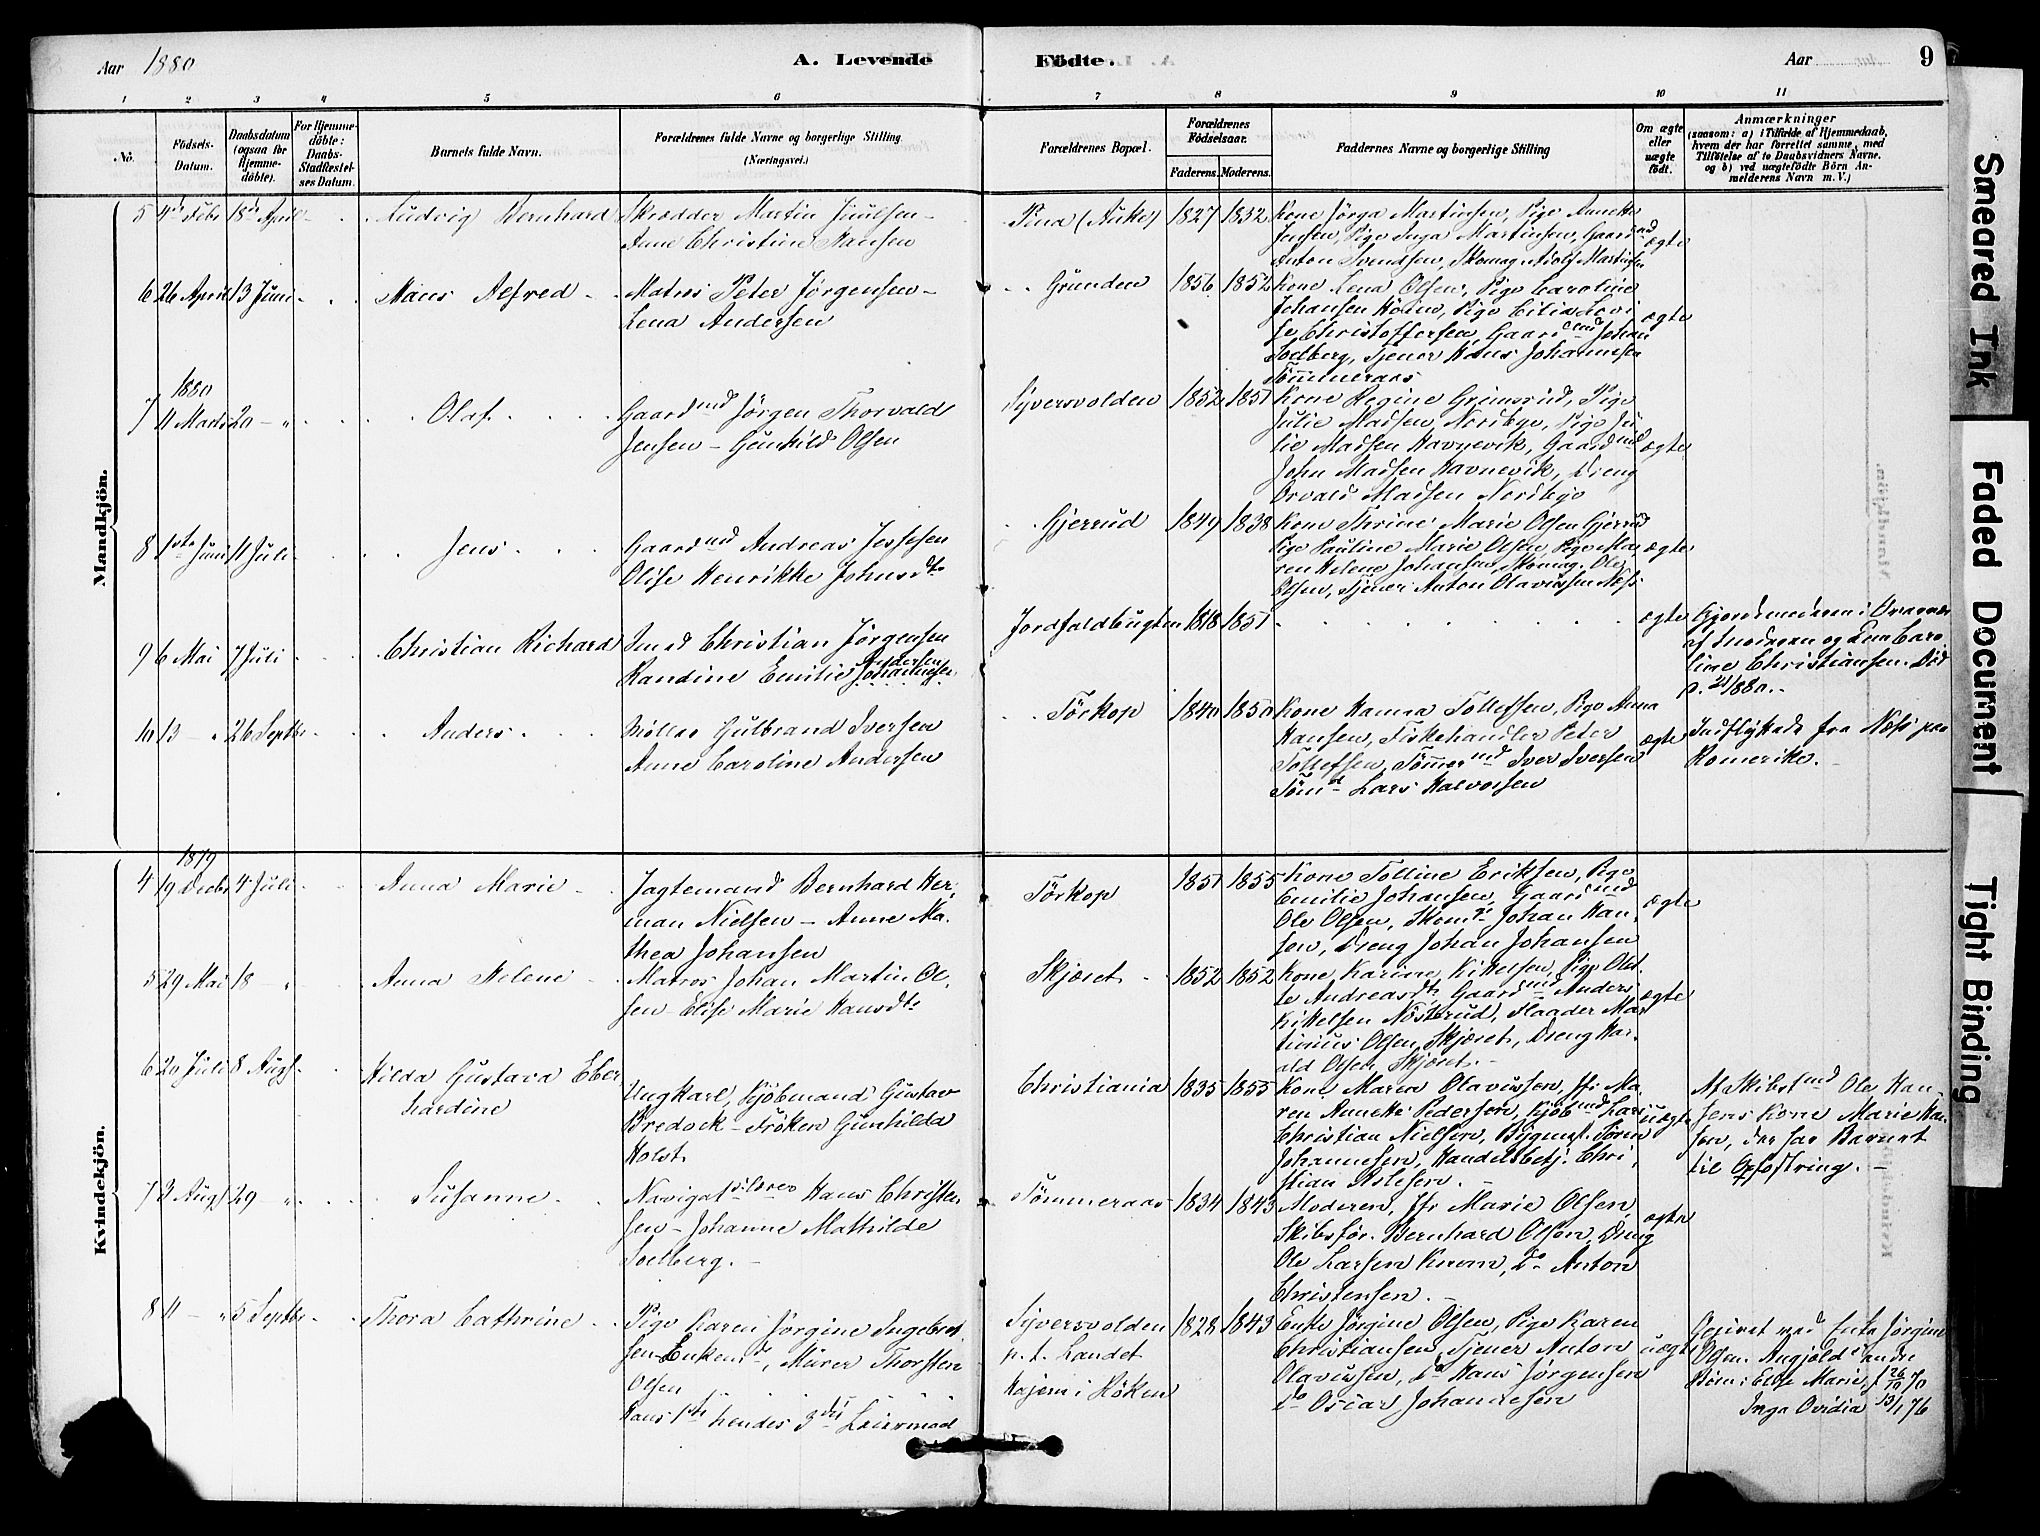 Aar 1880
A. Levende
Födte.
Aar
9
1 2 3 4 5 6 7 8 9 10 11
No.
Födsels-
Datum.
Daabsdatum
(ogsaa for
Hjemme-
döbte).
For Hjemme-
döbte:
Daabs-
Stadfæstel-
ses Datum.
Barnets fulde Navn.
Forældrenes fulde Navne og borgerlige Stilling
(Næringsvei.)
Forældrenes Bopæl.
Forældrenes
Fødselsaar.
Faderens. Moderens.
Faddernes Navne og borgerlige Stilling
Om ægte
eller
uægte
født.
Anmærkninger
(saasom: a) i Tilfælde af Hjemmedaab,
hvem der har forrettet samme, med
Tilföielse af to Daabsvidners Navne,
og b) ved uægtefödte Börn An-
melderens Navn m. V.)
Mandkjön.
5 4de Febr 18de April Ludvig Bernhard
Skrædder Martin Juulsen
Anne Christine Hansen
1827 1832
Kone Jörga Martinsen, Pige Annette
Jensen, Pige Inga Martinsen, Gaardmd
Anton Svendsen, Skomag. Adolf Martinsen
ægte
6 26 April 13 Juni Hans Alfred
Matros Peter Jörgensen
Lena Andersen
Grunden 1856 1852
Kone Lena Olsen, Pige Caroline
Johansen Holm, Pige Cilia Lovi
se Christoffersen, Gaardmd Johan
Solberg, Tjener Hans Johannesen
Tömmeraas
ægte
1880
7 11 Marts 20 — " Olaf
Gaardmd Jörgen Thorvald
Jensen — Gunhild Olsen
Syversvolden 1852 1851
Kone Regine Grimsrud, Pige
Julie Madsen Nordbye, Pige Ju
lie Madsen Havnevik, Gaardmd
John Madsen Havnevik, Dreng
Orvald Madsen Nordbye
ægte
8 1ste Juni 11 Juli Jens
Gaardmd Andreas Jessesen
Olise Henrikke Johnsdt
Gjerrud 1849 1838
Kone Thrine Marie Olsen Gjerrud
Pige Pauline Marie Olsen, Pige Ma
ren Helene Johansen, Skomag. Ole
Olsen, Tjener Anton Olavussen Næss
ægte
9 6 Mai 7 Juli Christian Richard
Indsd Christian Jörgensen
Andersen
Randine Emilie Johannesen
Jordfaldbugten 1818 1851
ægte
Gjordemoderen i Overvær
af Moderen og Lena Caro
line Christiansen. Död
10 13 — " 26 Septbr Anders
Möller Gulbrand Iversen
Anne Caroline Andersen
Törkop 1840 1850
Kone Hanna Tollefsen, Pige Anna
Hansen, Fiskehandler Peter
Tollefsen, Tömmermd Iver Iversen
Tömmd Lars Halvorsen
ægte
Indflyttede fra Næss paa
Romerike.
Kvindekjön.
1879
4 19 Decbr 4 Juli Anna Marie
Jagtemand Bernhard Her-
man Nielsen — Anne Ma-
thea Johansen
Törkop 1851 1855
Kone Tolline Eriksen, Pige
Emilie Johansen, Gaardmd
Ole Olsen, Skom. Johan Han-
sen, Dreng Johan Johansen
ægte
5 29 Mai 18 — " Anna Helene
Matros Johan Martin Ol-
sen — Elise Marie Hansdt
Skjæret 1852 1852
Kone Karine Kikelsen, Pige Olet-
te Andreasdt, Gaardmd Anders
Kikelsen Nösterud, Flaader Mar
tinius Olsen Skjæret, Dreng Har-
ald Olsen Skjæret.
ægte
6 20 Juli 8 Augs Hilda Gustava Eber
hardine
Ungkarl, Kjöbmand Gustav
Bredock — Fröken Gunhilda
Holst
Christiania 1835 1855
Kone Maren Olavussen, Jfr Ma-
ren Annette Pedersen, Kjöbmd Lars
Christian Nielsen, Bygmst. Sören
Johannesen, Handelsbetj. Chri-
stian Nilsen.
uægte
Af Skibstmd Ole Han-
sens Kone Marie Han-
sen, der har Barnet
til Opfostring. —
7 3 Augs 29 — " Susanne
Navigatslærer Hans Christen
sen — Johanne Mathilde
Solberg. —
Tömmeraas 1834 1843
Moderen, Jfr Marie Olsen,
Skibsför. Bernhard Olsen, Dreng
Ole Larsen Knem, do Anton
Christensen. —
ægte
8 11 — " 5 Septbr Thora Cathrine
Pige Karen Jörgine Ingebret
sen — Enkemd, Murer Thorsten
Olsen
Hans 1ste hendes 3die Leiermaal
Syversvolden
p. t. Landet
Hajem i Höken
1828 1843
Enke Jörgine Olsen, Pige Karen
Christiansen, Tjener Anton
Olavussen, do Hans Jörgensen
do Oscar Johannesen
uægte
Opgivet ved Enke Jörgine
Olsen. Angjeld andre
Börn: Elise Marie, f 26/10 70
Inga Ovidia 13/1 76
Smeared Ink
Faded Document
Tight Binding